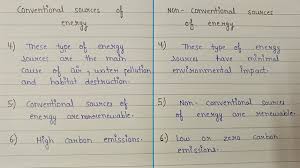 Conventional sources of
energy
4) These type of energy
sources are the main
cause of air, water pollution
and habitat destruction.
5) Conventional sources of
energy are nonrenewable.
6) High carbon emissions.
Non-conventional sources
of energy
4) These type of energy
sources have minimal
environmental impact.
5) Non-conventional sources
of energy are renewable.
6) Low or zero carbon
emissions.